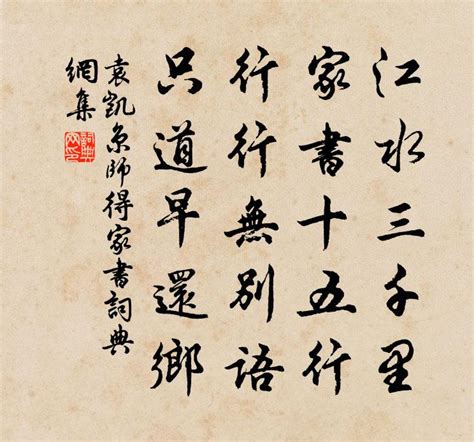 江水三千里
家書十五行
行行無別語
只道早還鄉
袁凱京師得家書詞典
網集
詞典
网印